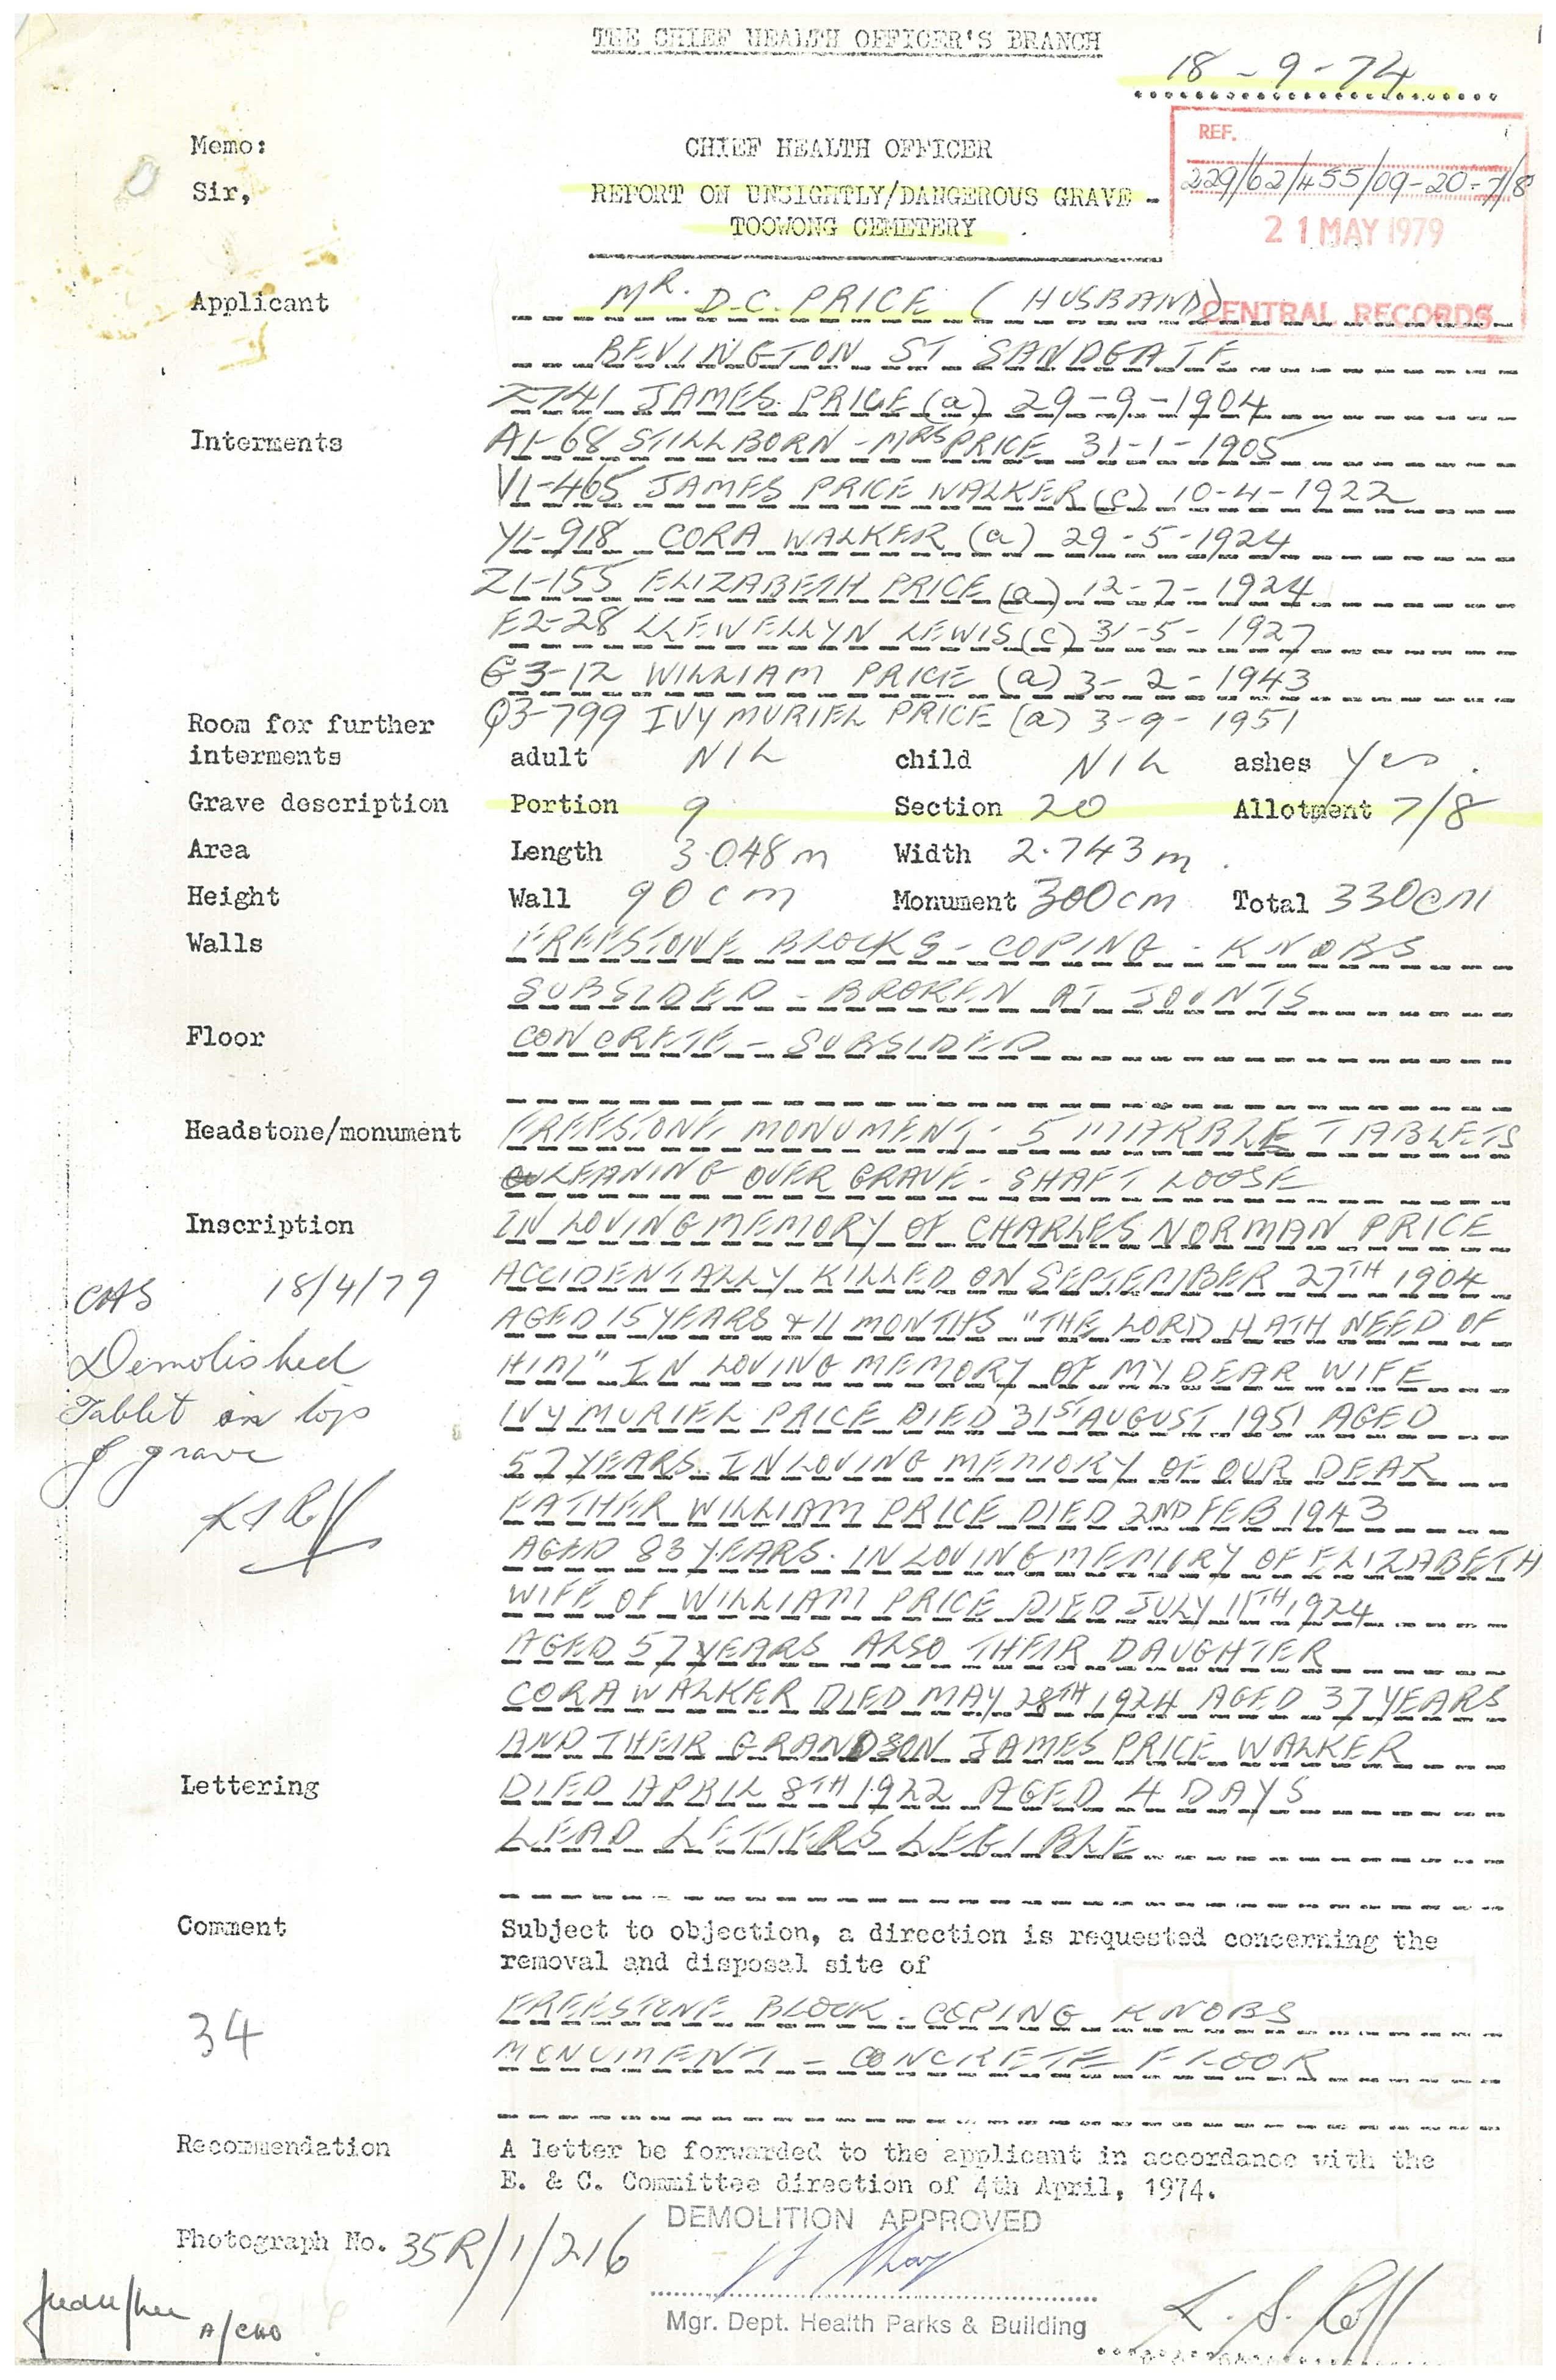 THE CHIEF HEALTH OFFICER'S BRANCH
18-9-74
Memo:
CHIEF HEALTH OFFICER
REF.
229/62/455/09-20-7/8
Sir,
REPORT ON UNSIGHTLY/DANGEROUS GRAVE -
TOOWONG CEMETERY
21 MAY 1979
CENTRAL RECORDS
Applicant MR. D.C. PRICE (HUSBAND)
BEVINGTON ST SANDGATE
2741 JAMES PRICE (a) 29-9-1904
Interments A1-68 STILLBORN - MRS PRICE 31-1-1905
V1-465 JAMES PRICE WALKER (c) 10-4-1922
Y1-918 CORA WALKER (a) 29-5-1924
Z1-155 ELIZABETH PRICE (a) 12-7-1924
E2-28 LLEWELLYN LEWIS (c) 31-5-1927
G3-12 WILLIAM PRICE (a) 3-2-1943
Room for further Q3-799 IVY MURIEL PRICE (a) 3-9-1951
interments adult NIL child NIL ashes Yes.
Grave description Portion 9 Section 20 Allotment 7/8
Area Length 3.048m Width 2.743m.
Height Wall 90cm Monument 300cm Total 330cm
Walls FREESTONE BLOCKS - COPING - KNOBS
SUBSIDED - BROKEN AT JOINTS
Floor CONCRETE - SUBSIDED
Headstone/monument FREESTONE MONUMENT - 5 MARBLE TABLETS
LEANING OVER GRAVE - SHAFT LOOSE
Inscription IN LOVING MEMORY OF CHARLES NORMAN PRICE
ACCIDENTALLY KILLED ON SEPTEMBER 27TH 1904
AGED 15 YEARS & 11 MONTHS "THE LORD HATH NEED OF
HIM" IN LOVING MEMORY OF MY DEAR WIFE
IVY MURIEL PRICE DIED 31ST AUGUST 1951 AGED
57 YEARS. IN LOVING MEMORY OF OUR DEAR
FATHER WILLIAM PRICE DIED 2ND FEB 1943
AGED 83 YEARS. IN LOVING MEMORY OF ELIZABETH
WIFE OF WILLIAM PRICE DIED JULY 11TH 1924
AGED 57 YEARS ALSO THEIR DAUGHTER
CORA WALKER DIED MAY 28TH 1924 AGED 37 YEARS
AND THEIR GRANDSON JAMES PRICE WALKER
Lettering DIED APRIL 8TH 1922 AGED 4 DAYS
LEAD LETTERS LEGIBLE
18/4/79
Demolished
Tablet on top
of grave
Comment Subject to objection, a direction is requested concerning the
removal and disposal site of
34
FREESTONE BLOCK - COPING KNOBS
MONUMENT - CONCRETE FLOOR
Recommendation A letter be forwarded to the applicant in accordance with the
E. & C. Committee direction of 4th April, 1974.
DEMOLITION APPROVED
Photograph No. 35R/1/216
A/CHO
Mgr. Dept. Health Parks & Building